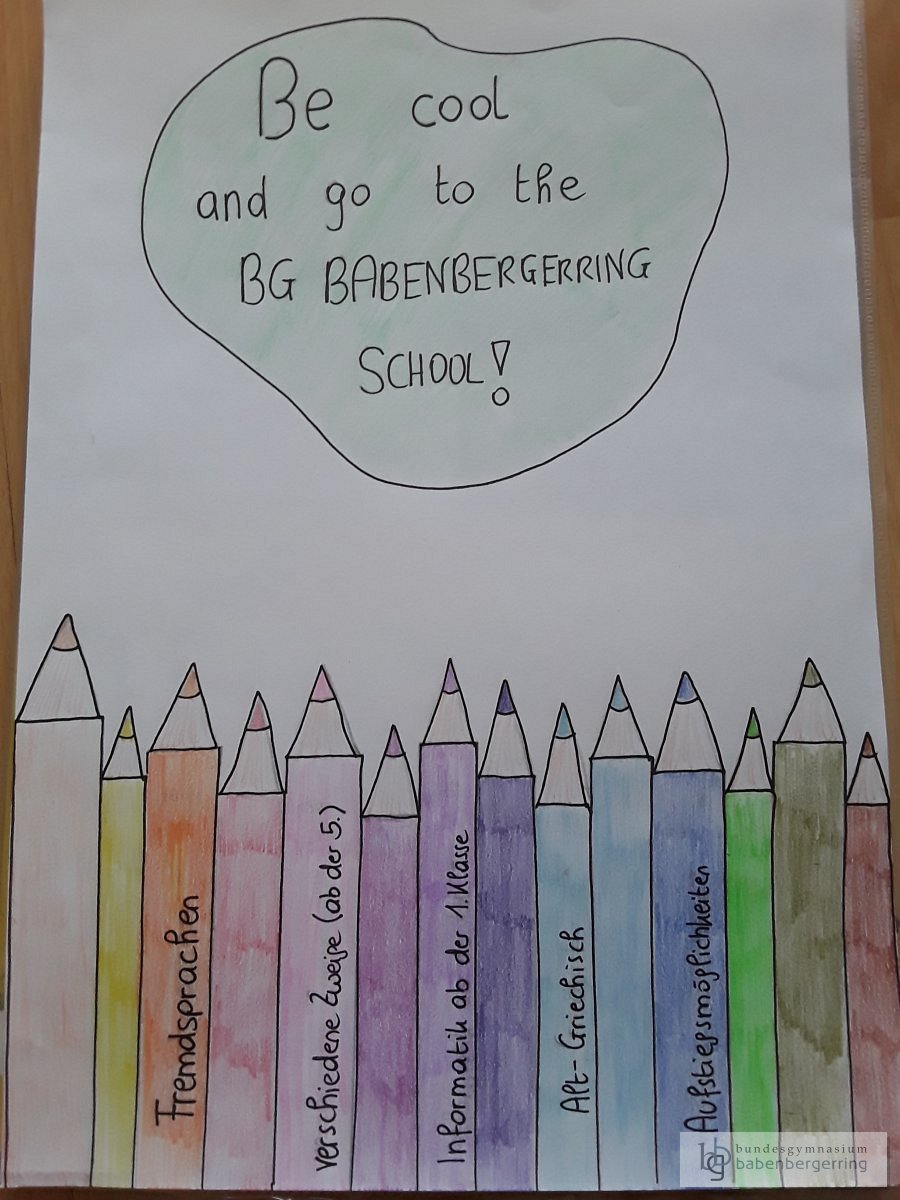 Be cool
and go to the
BG BABENBERGERRING
SCHOOL!
Fremdsprachen
verschiedene Zweige (ab der 5.)
Informatik ab der 1. Klasse
Alt-Griechisch
Aufstiegsmöglichkeiten
bundesgymnasium
babenbergerring